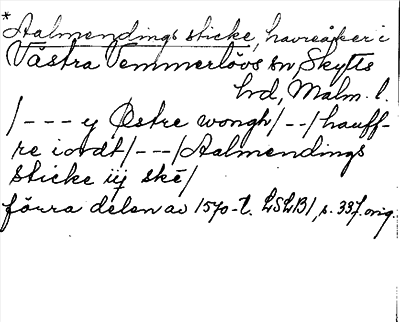 *
Aalmendings sticke, havreåker i
Västra Vemmerlövs sn, Skytts
hd, Malm. l.
/--- y Østre wongh/--/hauff-
re iordt/---/Aalmendings
sticke iij skē/
förra delen av 1570-t. LSLB1, s. 337. orig.